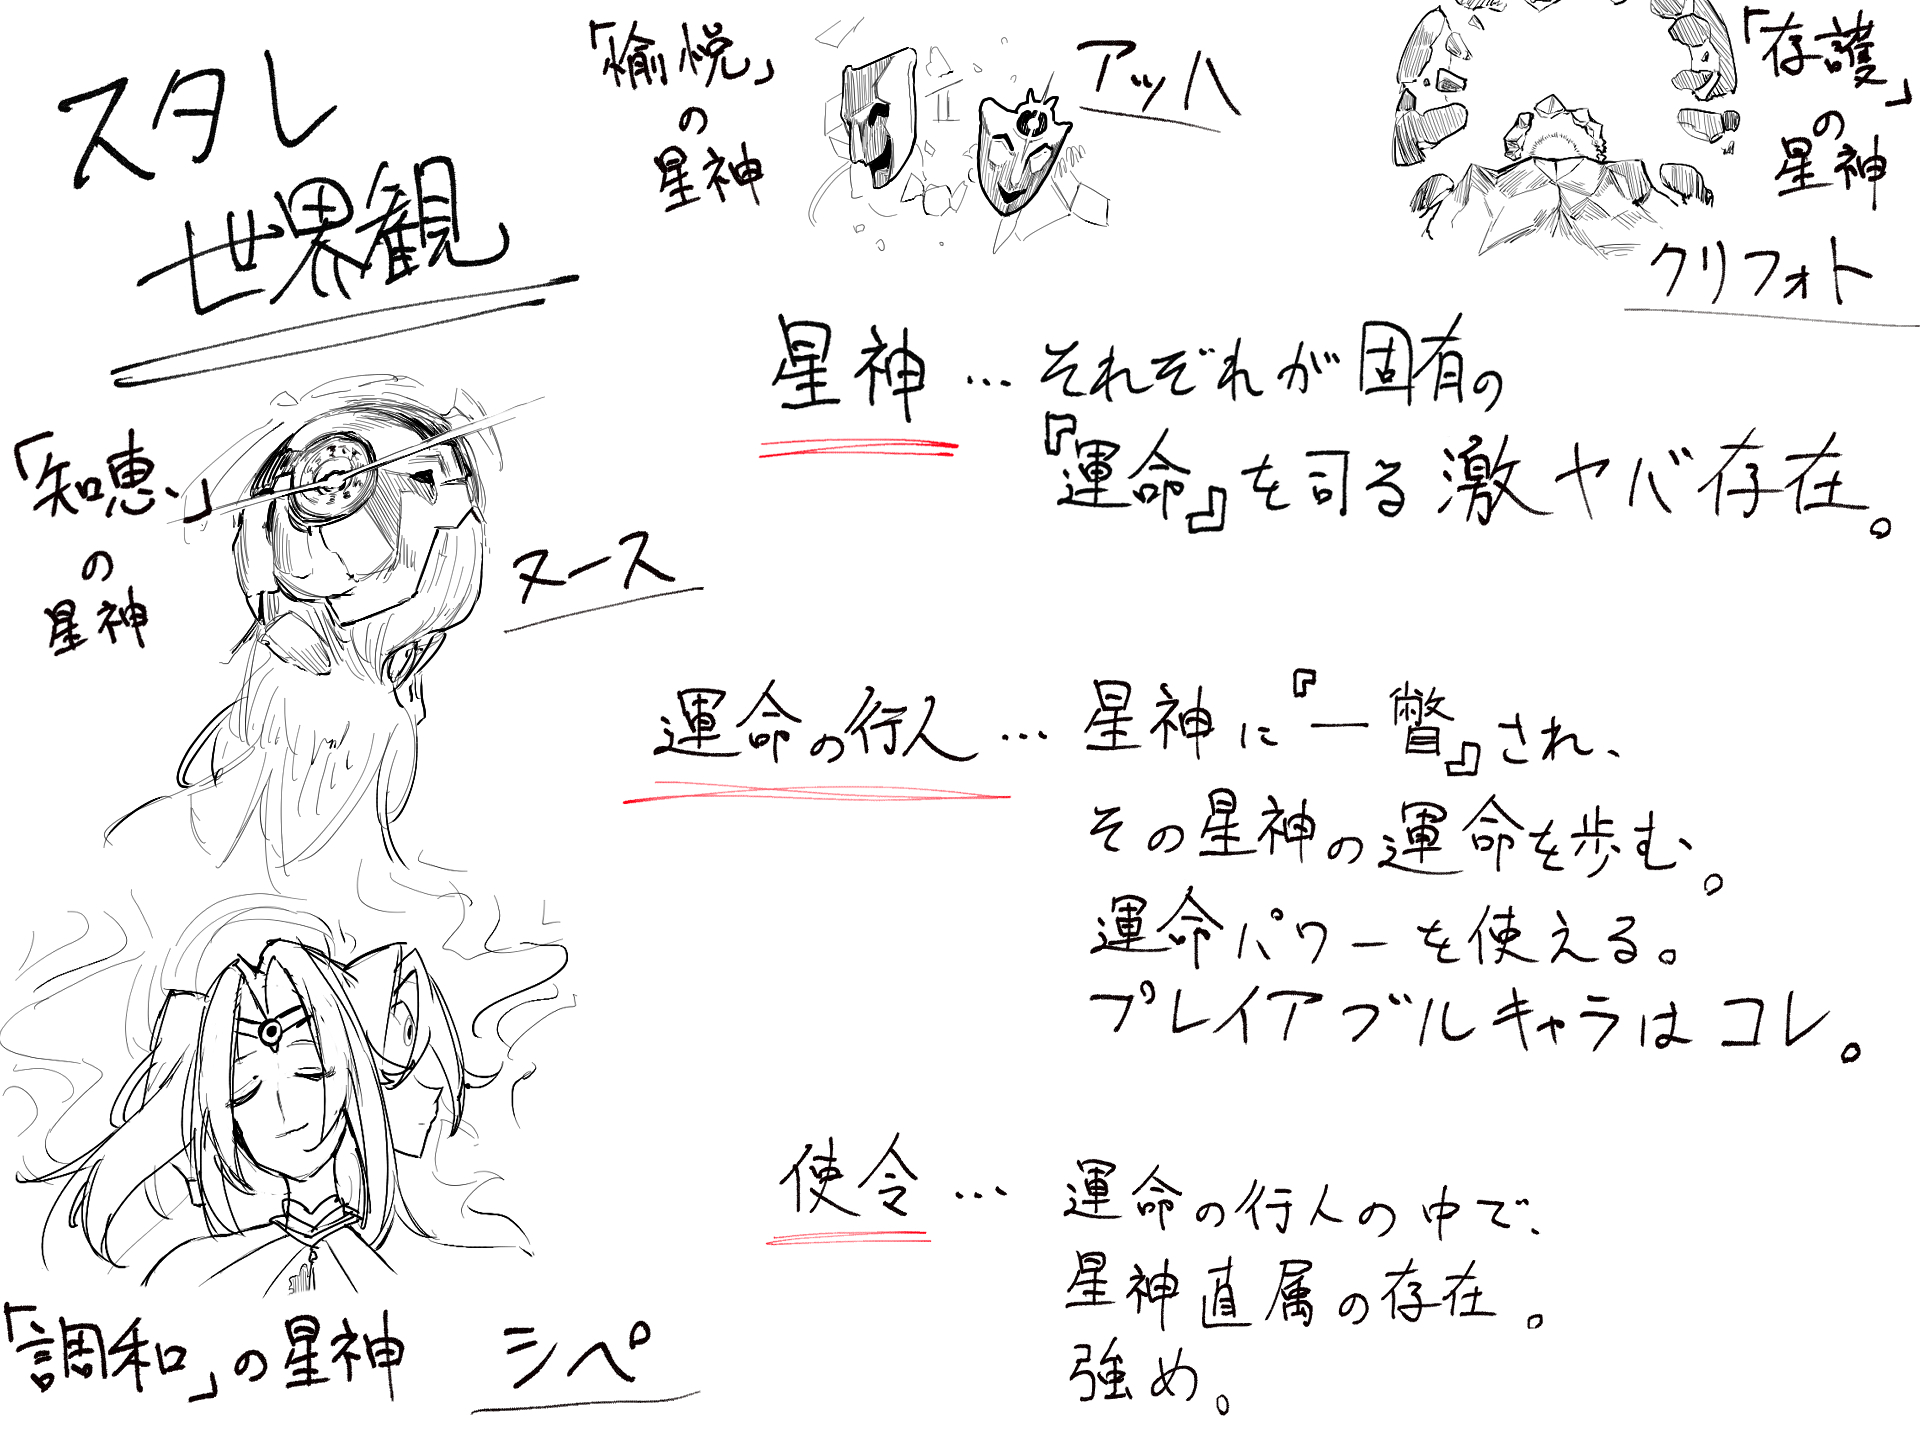 スタレ
世界観
「愉悦」
の
星神
アッハ
「存護」
の
星神
クリフォト
「知恵」
の
星神
ヌース
「調和」の星神 シペ
星神…それぞれが固有の
『運命』を司る激ヤバ存在。
運命の行人…星神に『一瞥』され、
その星神の運命を歩む。
運命パワーを使える。
プレイアブルキャラはコレ。
使令…運命の行人の中で、
星神直属の存在。
強め。